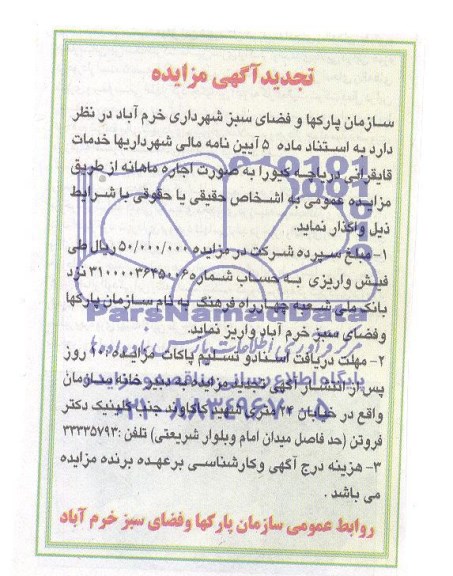 تجدید آگهی مزایده
سازمان پارکها و فضای سبز شهرداری خرم آباد در نظر
دارد به استناد ماده ۵ آیین نامه مالی شهرداریها خدمات
قایقرانی دریاچه کیو را به صورت اجاره ماهانه از طریق
مزایده عمومی به اشخاص حقیقی یا حقوقی با شرایط
ذیل واگذار نماید.
۱- مبلغ سپرده شرکت در مزایده ۵۰/۰۰۰/۰۰۰ ریال طی
فیش واریزی به حساب شماره ۳۱۰۰۰۰۳۶۴۵۰۰۶ نزد
بانک ملی شعبه چهارراه فرهنگ به نام سازمان پارکها
ParsNamadData
وفضای سبز خرم آباد واریز نماید.
۲- مهلت دریافت اسناد و تسلیم پاکات مزایده ۱۰ روز
پس از انتشار آگهی تجدید مزایده به دبیرخانه سازمان
واقع در خیابان ۲۴ متری شهید کاکاوند جنب کلینیک دکتر
۰۲۱-۸۸۳۴۹۶۷۰-۵
فروتن (حد فاصل میدان امام وبلوار شریعتی) تلفن :۳۳۳۳۵۷۹۳
۳- هزینه درج آگهی وکارشناسی برعهده برنده مزایده
می باشد .
روابط عمومی سازمان پارکها وفضای سبز خرم آباد